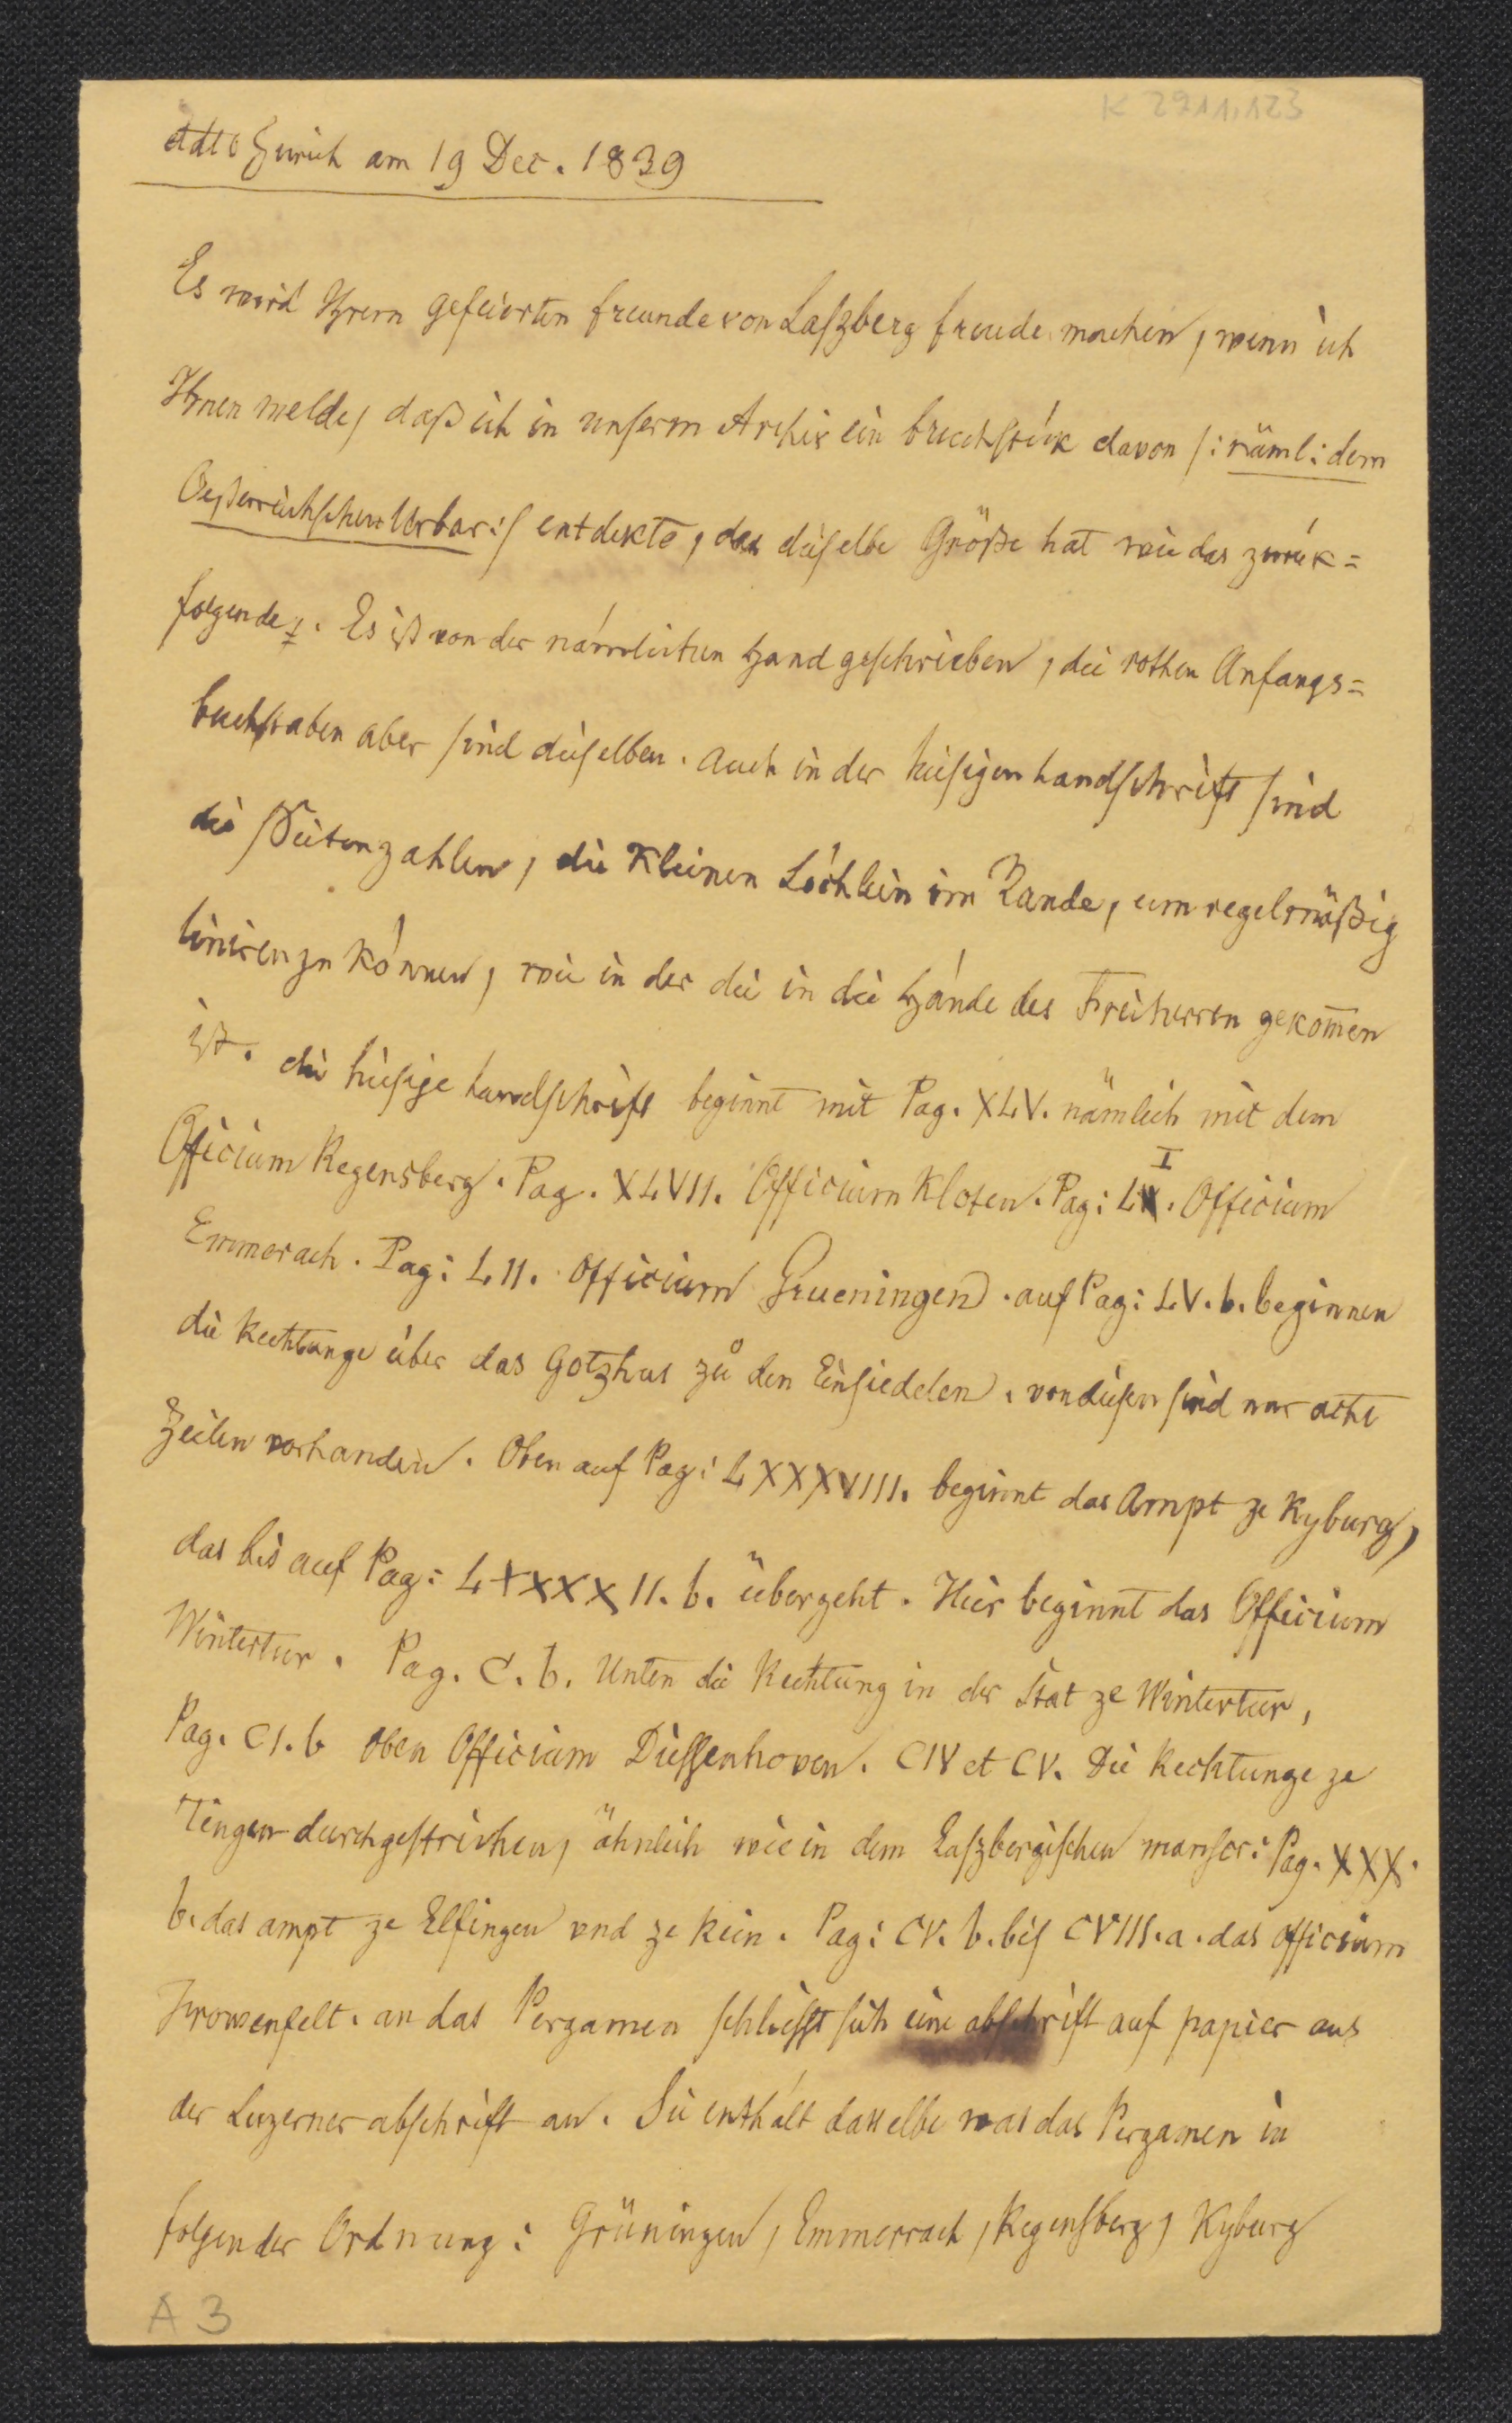 K 2911,123
ddto Zürich am 19 Dec. 1839
Es wird Ihrem gefeierten freunde von Laßzberg freude machen, wenn ich
Ihnen melde, daß ich in unserm Archiv ein bruchstük davon /: näml: dem
Oesterreichschen Urbar :/ entdekte, das dieselbe Größe hat wie das zurük=
folgende. Es ist von der nämlichen Hand geschrieben, die rothen Anfangs=
buchstaben aber sind dieselben. Auch in der hiesigen handschrift sind
die Seitenzahlen, die Kleinen Löchlein im Rande, um regelmäßig
liniren zu können, wie in der die in die Hände des Freiherren gekom̄en
ist. die hiesige handschrift beginnt mit Pag. XLV. nämlich mit dem
Officium Regensberg. Pag. XLVII. Officium Kloten. Pag: LI. Officium
Emmerach. Pag: LII. Officium Grueningen. auf Pag: LV. b. beginnen
die Rechtunge über das Gotzhus zů den Einsiedelen. von diesen sind nur acht
Zeilen vorhanden. Oben auf Pag: LXXXVIII. beginnt das Ampt ze Kyburg,
das bis auf Pag: LXXXXII. b. übergeht. Hier beginnt das Officium
Wintertur. Pag. C. b. Unten die Rechtung in der Stat ze Wintertur,
Pag. CI. b oben Officium Diessenhoven. CIV et CV. Die Rechtunge ze
Tengen durchgestrichen, ähnlich wie in dem Laßzbergischen manscr: Pag. XXX.
b. das ampt ze Elfingen und ze Rein. Pag: CV. b. bis CVIII. a. das officium
Frowenfelt. an das Pergamen schliesst sich eine abschrift auf papier aus
der Luzerner abschrift an. Sie enthält dasselbe was das Pergamen in
folgender Ordnung: Grüningen, Emmerrach, Regensberg, Kyburg
A 3